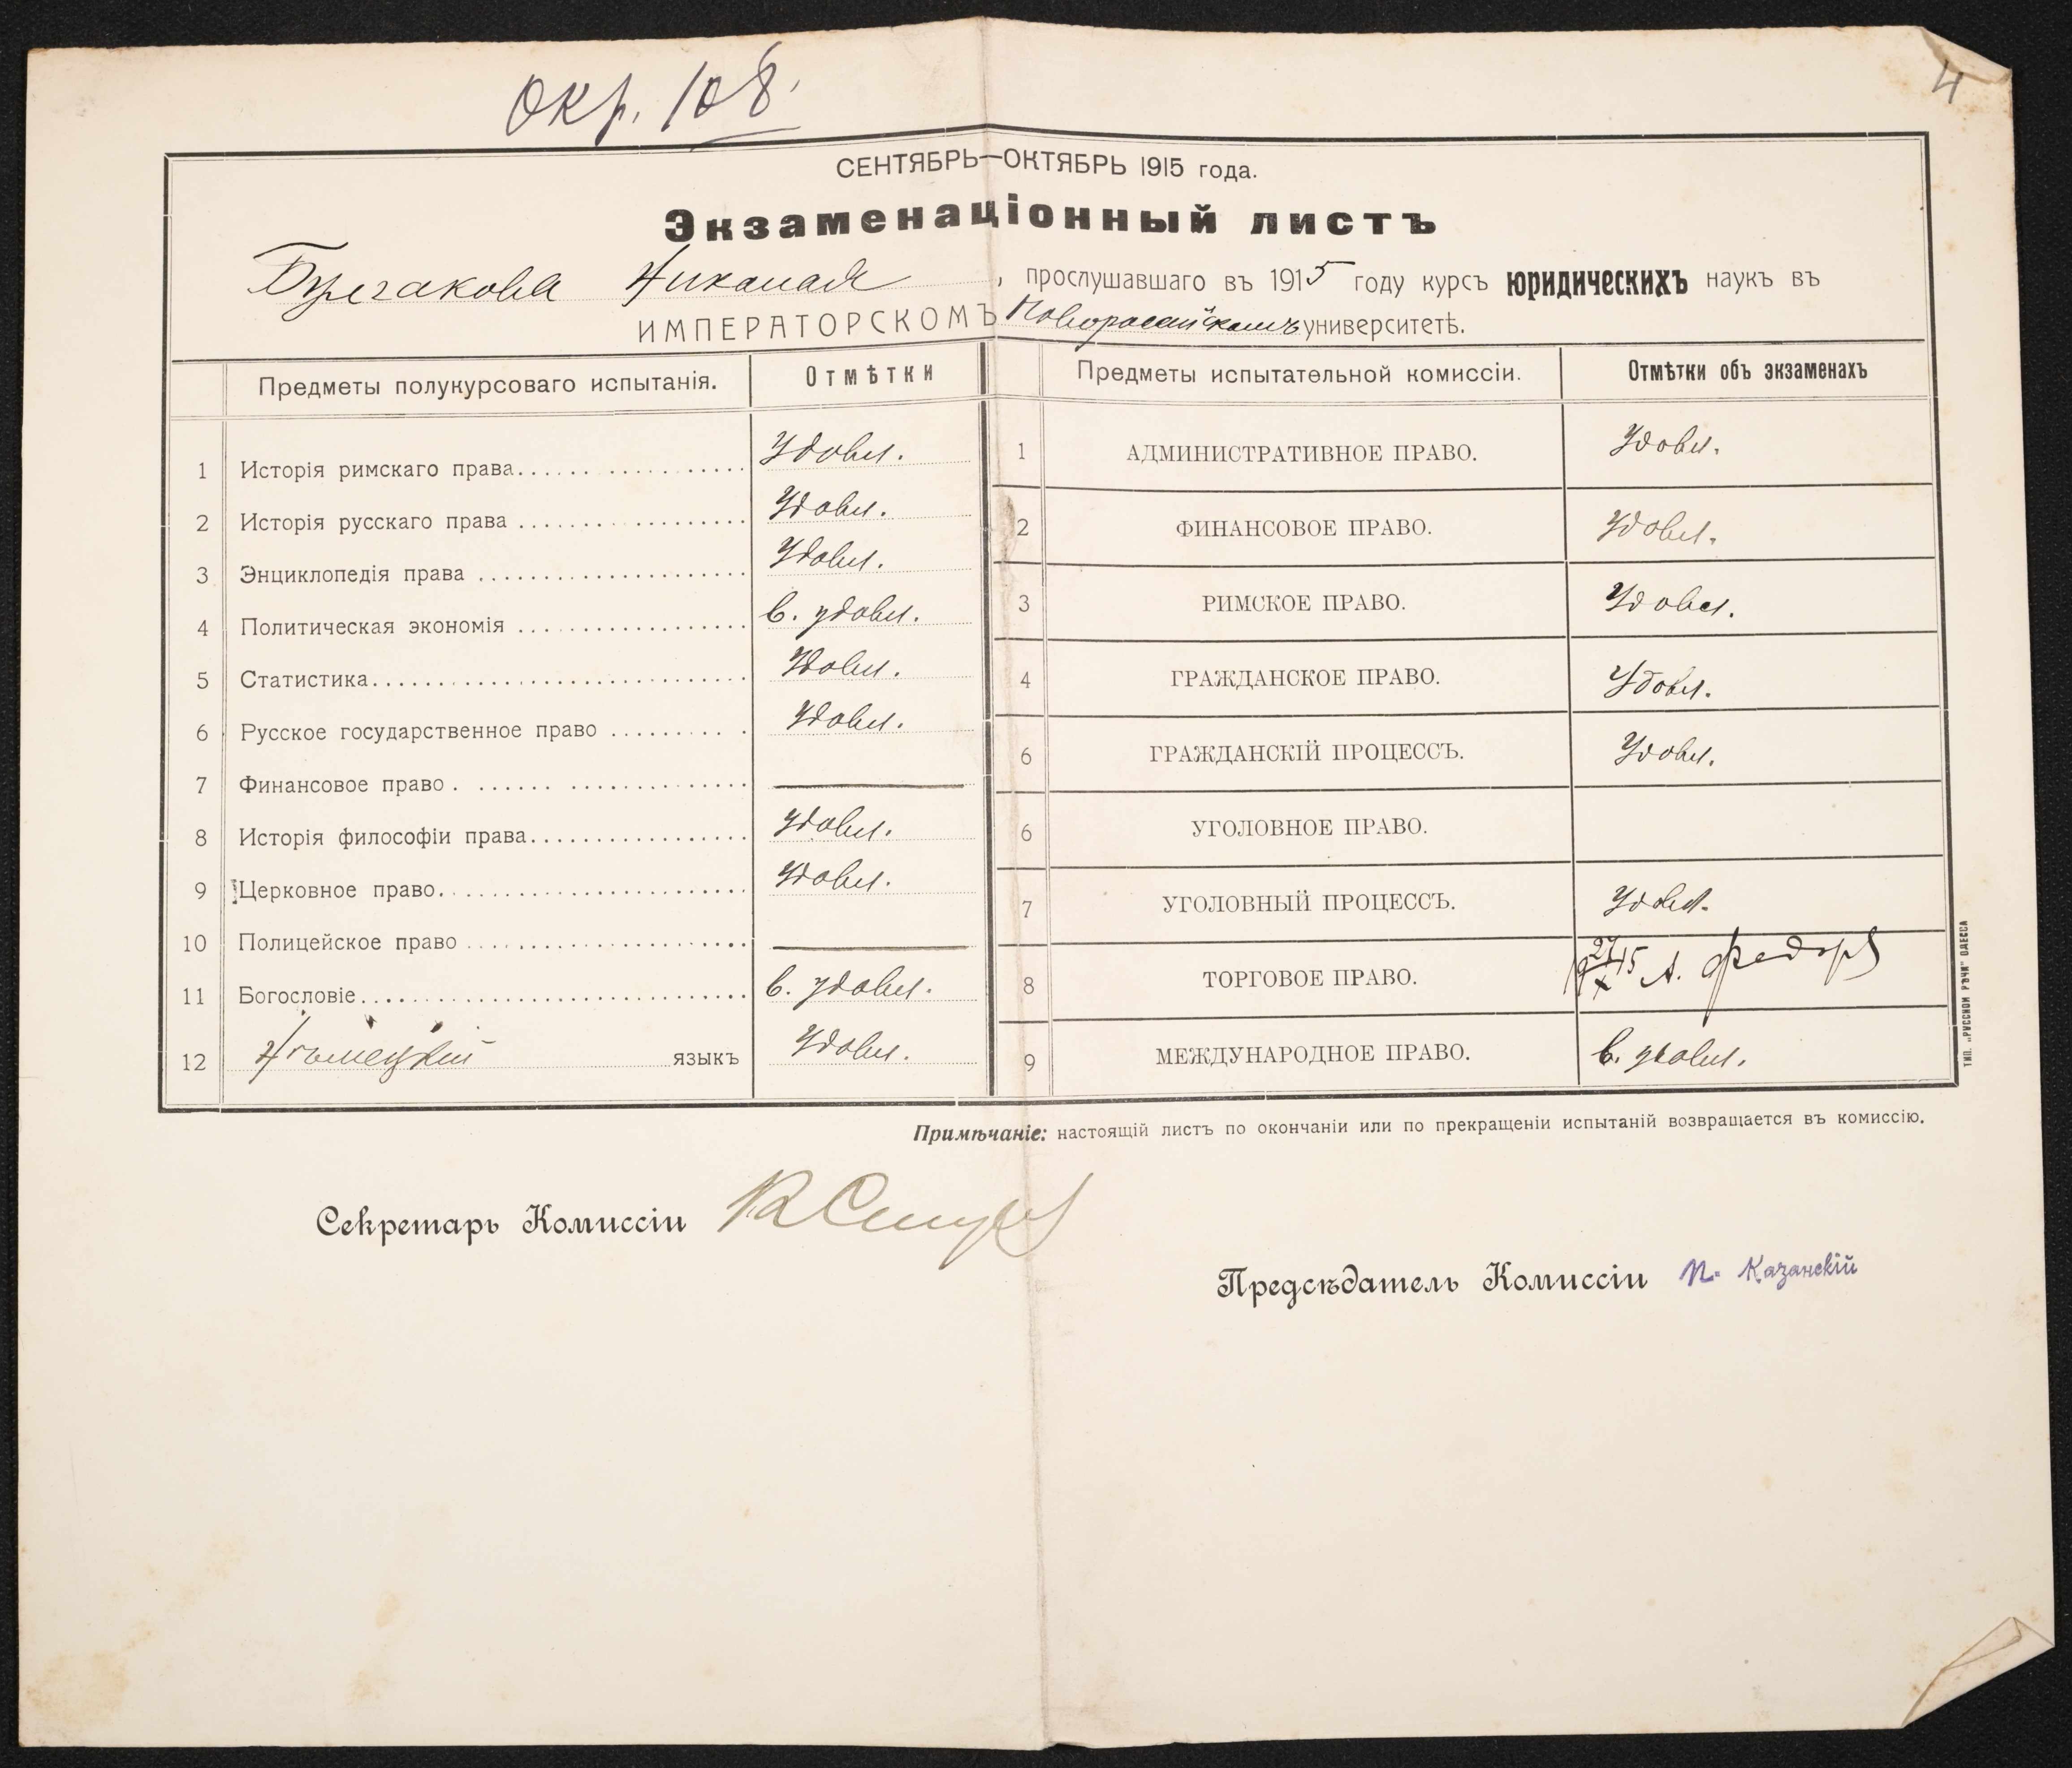 Окр. 108.
4
СЕНТЯБРЬ—ОКТЯБРЬ 1915 года.
Экзаменаціонный листъ
Николая, прослушавшаго въ 1915 году курсъ юридическихъ наукъ въ
ИМПЕРАТОРСКОМЪ Новороссійскомъ университетѣ.
Предметы полукурсоваго испытанія. Отмѣтки
1 Исторія римскаго права. Удовл.
2 Исторія русскаго права Удовл.
3 Энциклопедія права Удовл.
4 Политическая экономія в. удовл.
5 Статистика. Удовл.
6 Русское государственное право Удовл.
7 Финансовое право.
8 Исторія философіи права. Удовл.
9 Церковное право. Удовл.
10 Полицейское право
11 Богословіе. в. удовл.
12 Нѣмецкій языкъ Удовл.
Предметы испытательной комиссіи. Отмѣтки объ экзаменахъ
1 АДМИНИСТРАТИВНОЕ ПРАВО. Удовл.
2 ФИНАНСОВОЕ ПРАВО. Удовл.
3 РИМСКОЕ ПРАВО. Удовл.
4 ГРАЖДАНСКОЕ ПРАВО. Удовл.
6 ГРАЖДАНСКІЙ ПРОЦЕССЪ. Удовл.
6 УГОЛОВНОЕ ПРАВО.
7 УГОЛОВНЫЙ ПРОЦЕССЪ. Удовл.
8 ТОРГОВОЕ ПРАВО. А.
9 МЕЖДУНАРОДНОЕ ПРАВО. в. удовл.
ТИП. „РУССКОЙ РѢЧИ" ОДЕССА
Примѣчаніе: настоящій листъ по окончаніи или по прекращеніи испытаній возвращается въ комиссію.
Секретарь Комиссіи
Предсѣдатель Комиссіи П. Казанскій